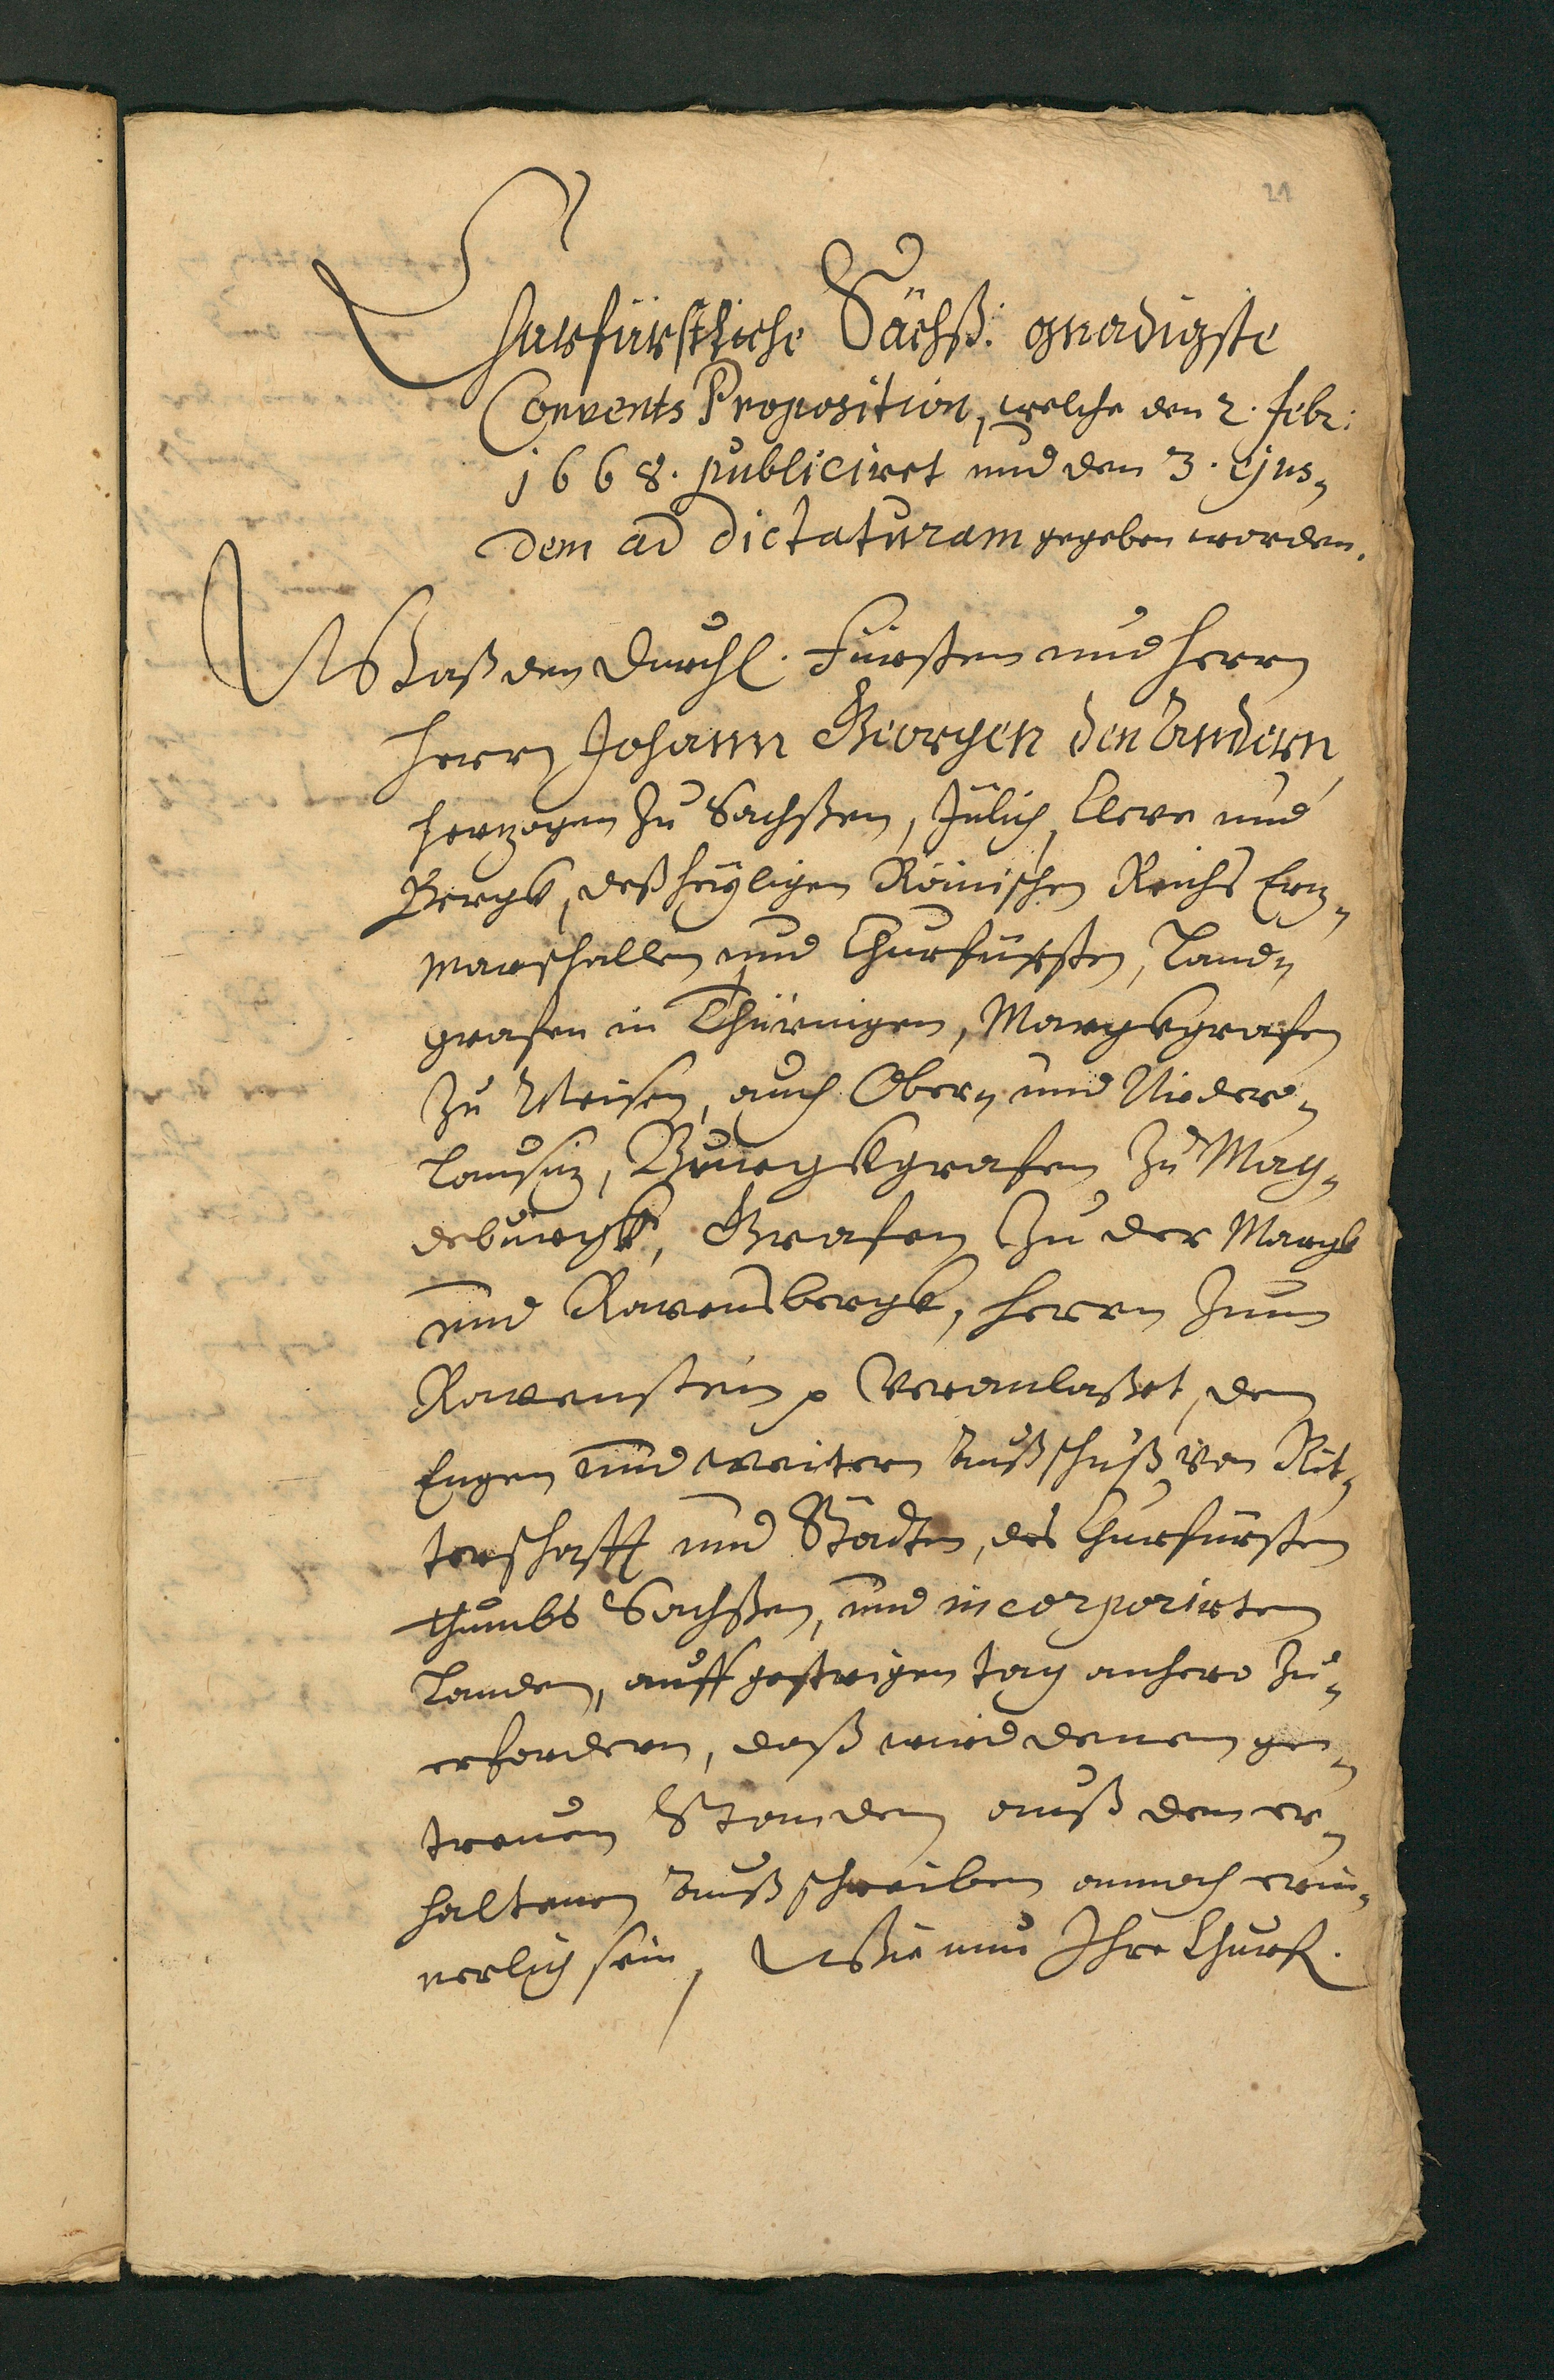 21
Churfürstliche Sächß. gnadigste
Convents Proposition, welche den 2. Febr:
1668. publiciret und den 3. ejus„
dem ad Dictaturam gegeben worden.
Waß den Durchl. Fürsten und Herrn
Herrn Johann Georgen den Andern,
Hertzogen zu Sachßen, Jülich, Cleve und
Bergk, deß heyligen Römischen Reichs Ertz„
Marschallen und Churfürsten, Land„
grafen in Thüringen, Marggrafen
zu Meisen, auch Ober„ und Nieder„
Lausitz, Burgkgrafen zu Mag„
deburgk, Grafen zu der Margk
und Ravensbergk, Herrn zum
Ravenstein p Veranlaßet, den
Engen und weitern Außschuß von Rit„
terschafft und Städten, des Churfürsten
thumbs Sachßen, und incorporirten
Landen, auff gestrigen tag anhero zu„
erfordern, daß wird denen ge„
treuen Standen auß dem er„
haltenen Außschreiben annoch erin„
nerlich sein, Wie nun Ihre Churf.